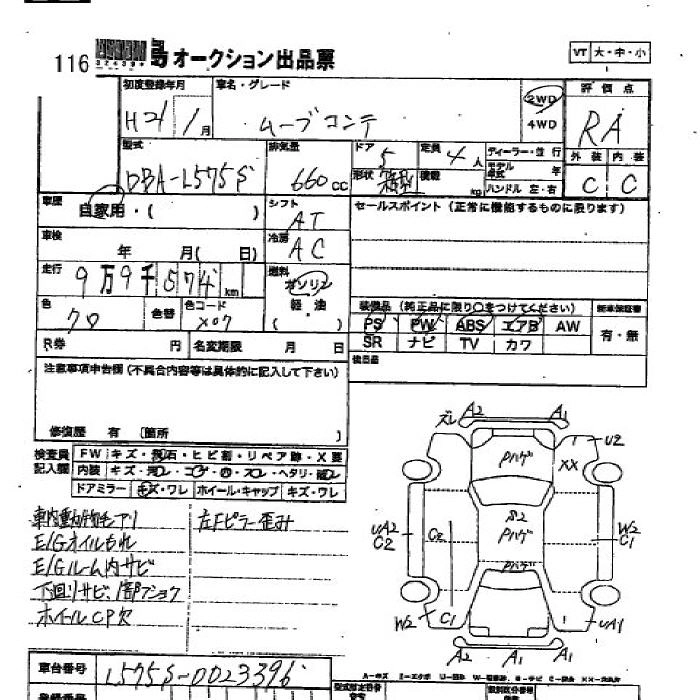 116 オークション出品票
VT 大・中・小
初度登録年月 車名・グレード 2WD 評価点
H21/1月 ムーブコンテ 4WD RA
型式 排気量 ドア 5 定員 4人 ディーラー・並行 外装 内装
DBA-L575S 660cc 形状 箱型 積載 kg モデル年式 年 C C
ハンドル 左・右
車歴 自家用・( ) シフト AT セールスポイント(正常に機能するものに限ります)
車検 年 月( 日) 冷房 AC
走行 9万9千574km 燃料 ガソリン
軽・油
( )
色 クロ 色替 色コード X07 装備品(純正品に限り○をつけてください) 新車保証書
PS PW ABS エアB AW 有・無
R券 円 名変期限 月 日 SR ナビ TV カワ
注意事項申告欄(不具合内容等は具体的に記入して下さい) 後日品
修復歴 有 〔箇所 〕
検査員記入欄 FW キズ・飛石・ヒビ割・リペア跡・X要
内装 キズ・汚レ・コゲ・穴・スレ・ヘタリ・破レ
ドアミラー キズ・ワレ ホイール・キャップ キズ・ワレ
車内動物毛アリ 左Fピラー歪み
E/Gオイルもれ
E/Gルーム内サビ
下回リサビ、1部フショク
ホイールCP欠
ズレ A2 A1
Pハゲ U2
XX
UA2 C2 C2 S2 Pハゲ W2 C1
Pハゲ
W2 C1 UA1
A2 A1 A1
車台番号 L575S-0023396